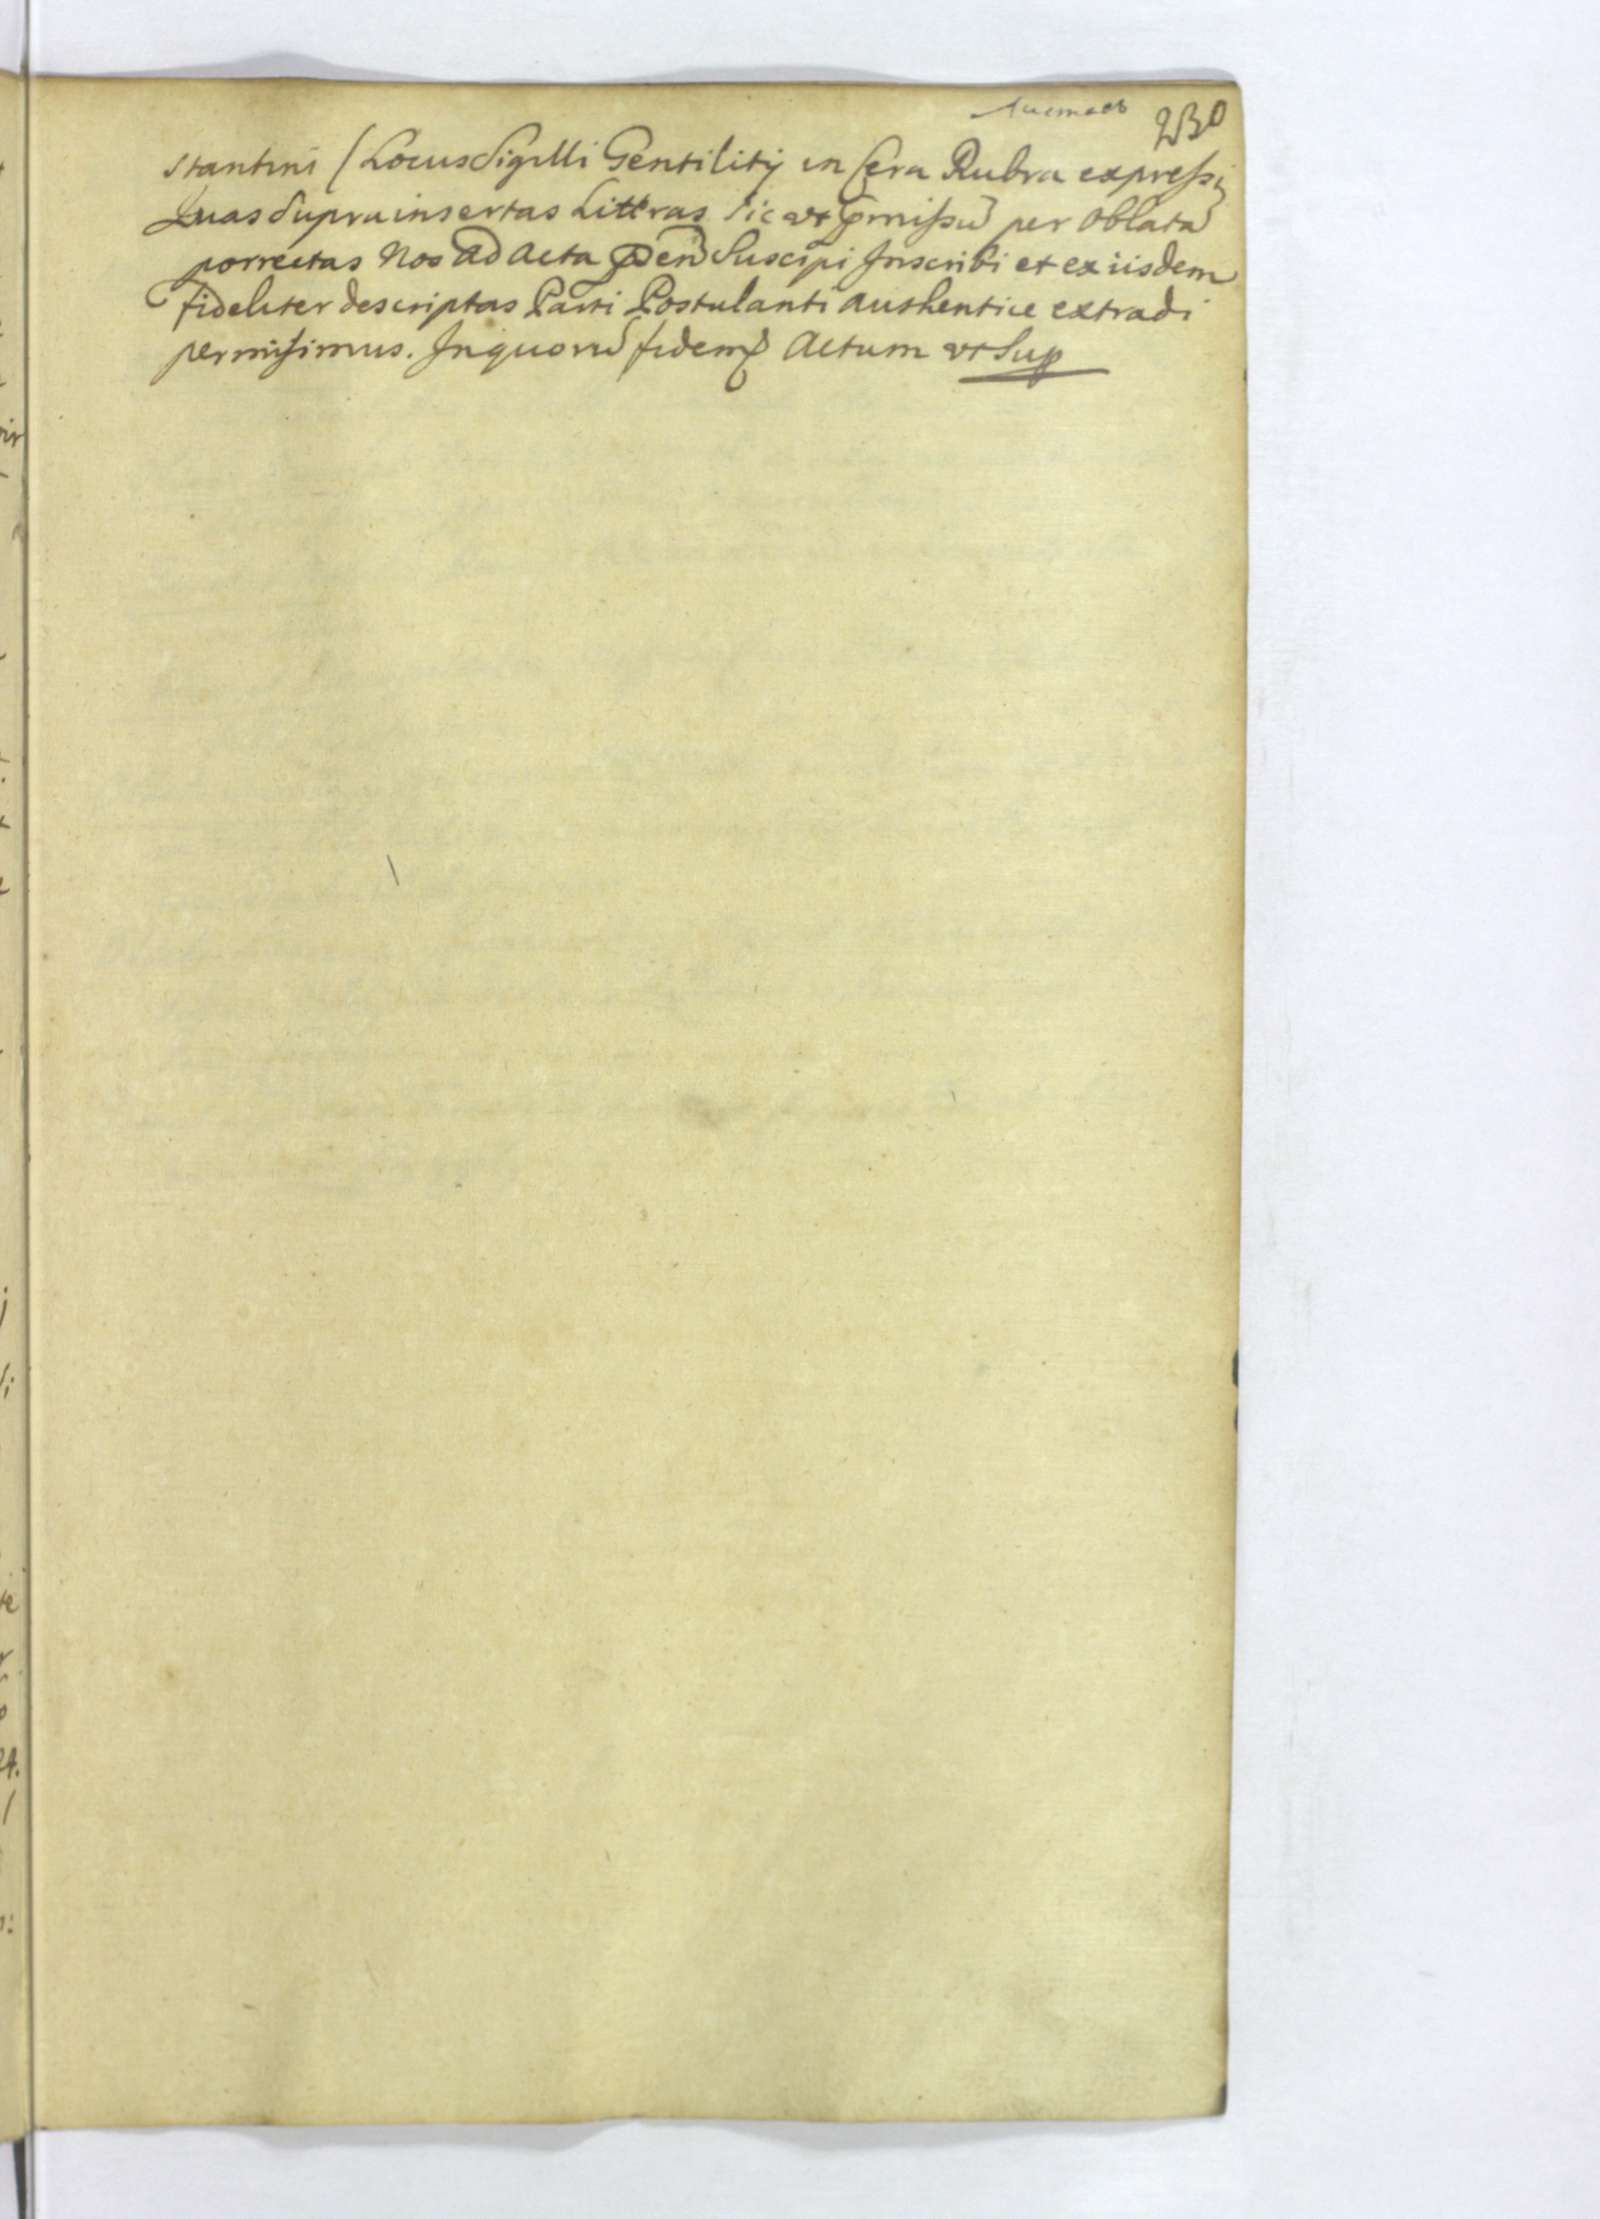 230
stantini (Locus Sigilli Gentilitij in Cera Rubra expressi)
Quas supra insertas Litteras sic ut pmissū per Oblatā
porrectas Nos ad Acta pñ Suscipi Inscribi et ex iisdem
fideliter descriptas Parti Postulanti authentice extradi
permisimus. In quorū fidem Actum ut Sup